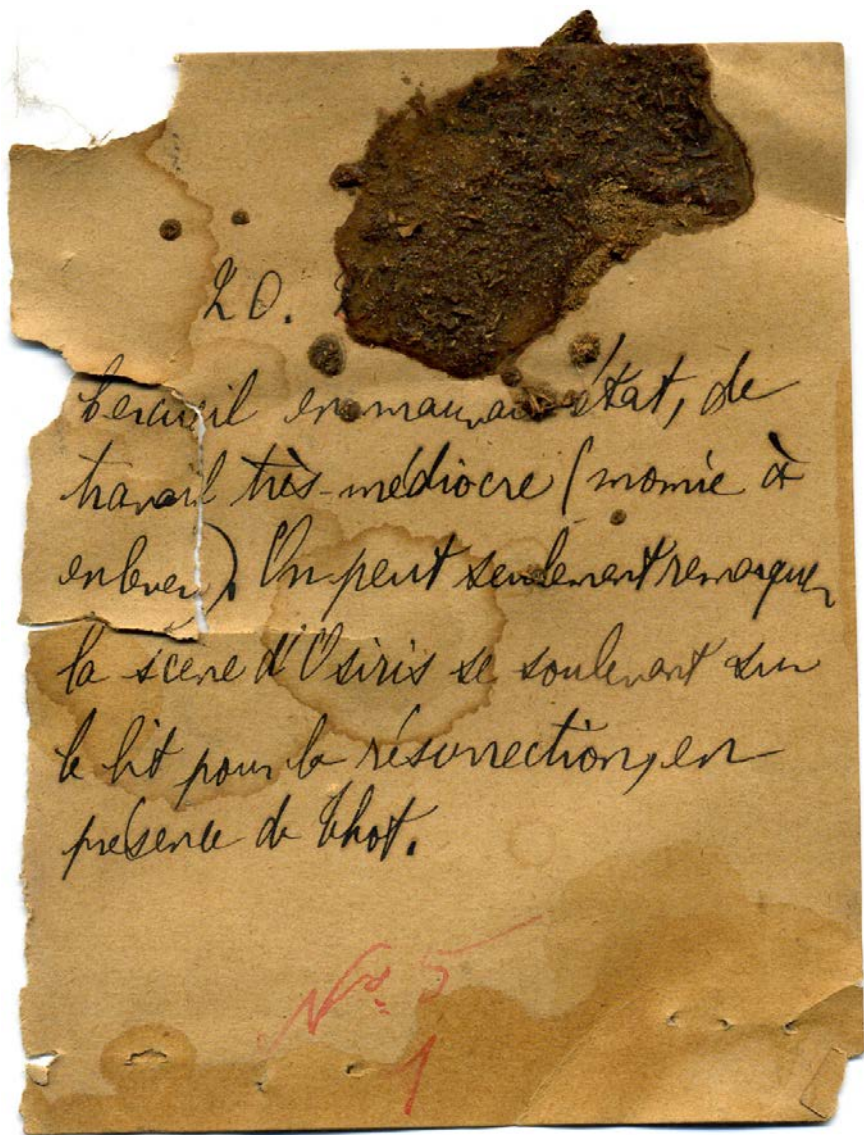 20.
Cercueil en mauvais état, de
travail très-médiocre (momie à
enlever). On peut seulement remarquer
la scène d'Osiris se soulevant sur
le lit pour la résurrection, en
présence de Thot.
Nº 5
1